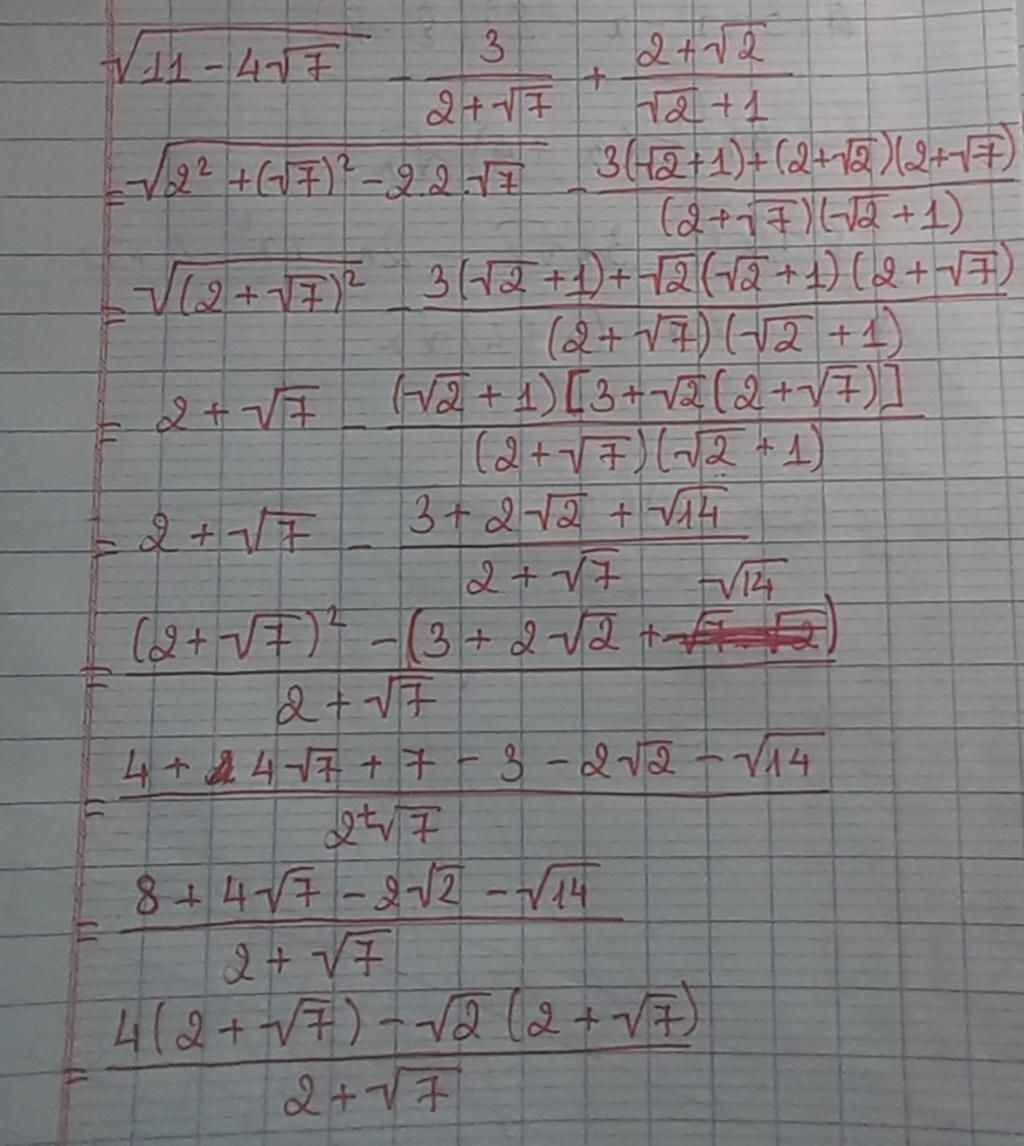 √(11 - 4√7) - 3/(2 + √7) + (2 + √2)/(√2 + 1)
= √(2² + (√7)² - 2.2.√7) - (3(√2 + 1) + (2 + √2)(2 + √7))/((2 + √7)(√2 + 1))
= √((2 + √7)²) - (3(√2 + 1) + √2(√2 + 1)(2 + √7))/((2 + √7)(√2 + 1))
= 2 + √7 - ((√2 + 1)[3 + √2(2 + √7)])/((2 + √7)(√2 + 1))
= 2 + √7 - (3 + 2√2 + √14)/(2 + √7)
= ((2 + √7)² - (3 + 2√2 + √14))/(2 + √7)
= (4 + 4√7 + 7 - 3 - 2√2 - √14)/(2 + √7)
= (8 + 4√7 - 2√2 - √14)/(2 + √7)
= (4(2 + √7) - √2(2 + √7))/(2 + √7)